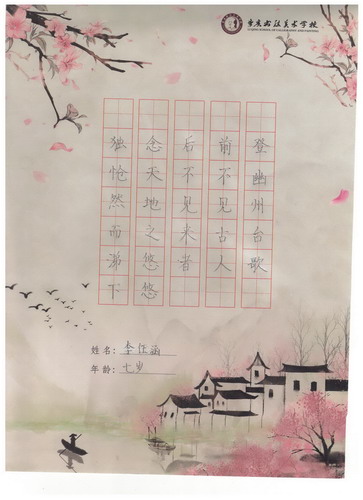 美术学校
SCHOOL OF CALLIGRAPHY AND PAINTING
登幽州台歌
前不见古人
后不见来者
念天地之悠悠
独怆然而涕下
姓名：李涵
年龄：七岁